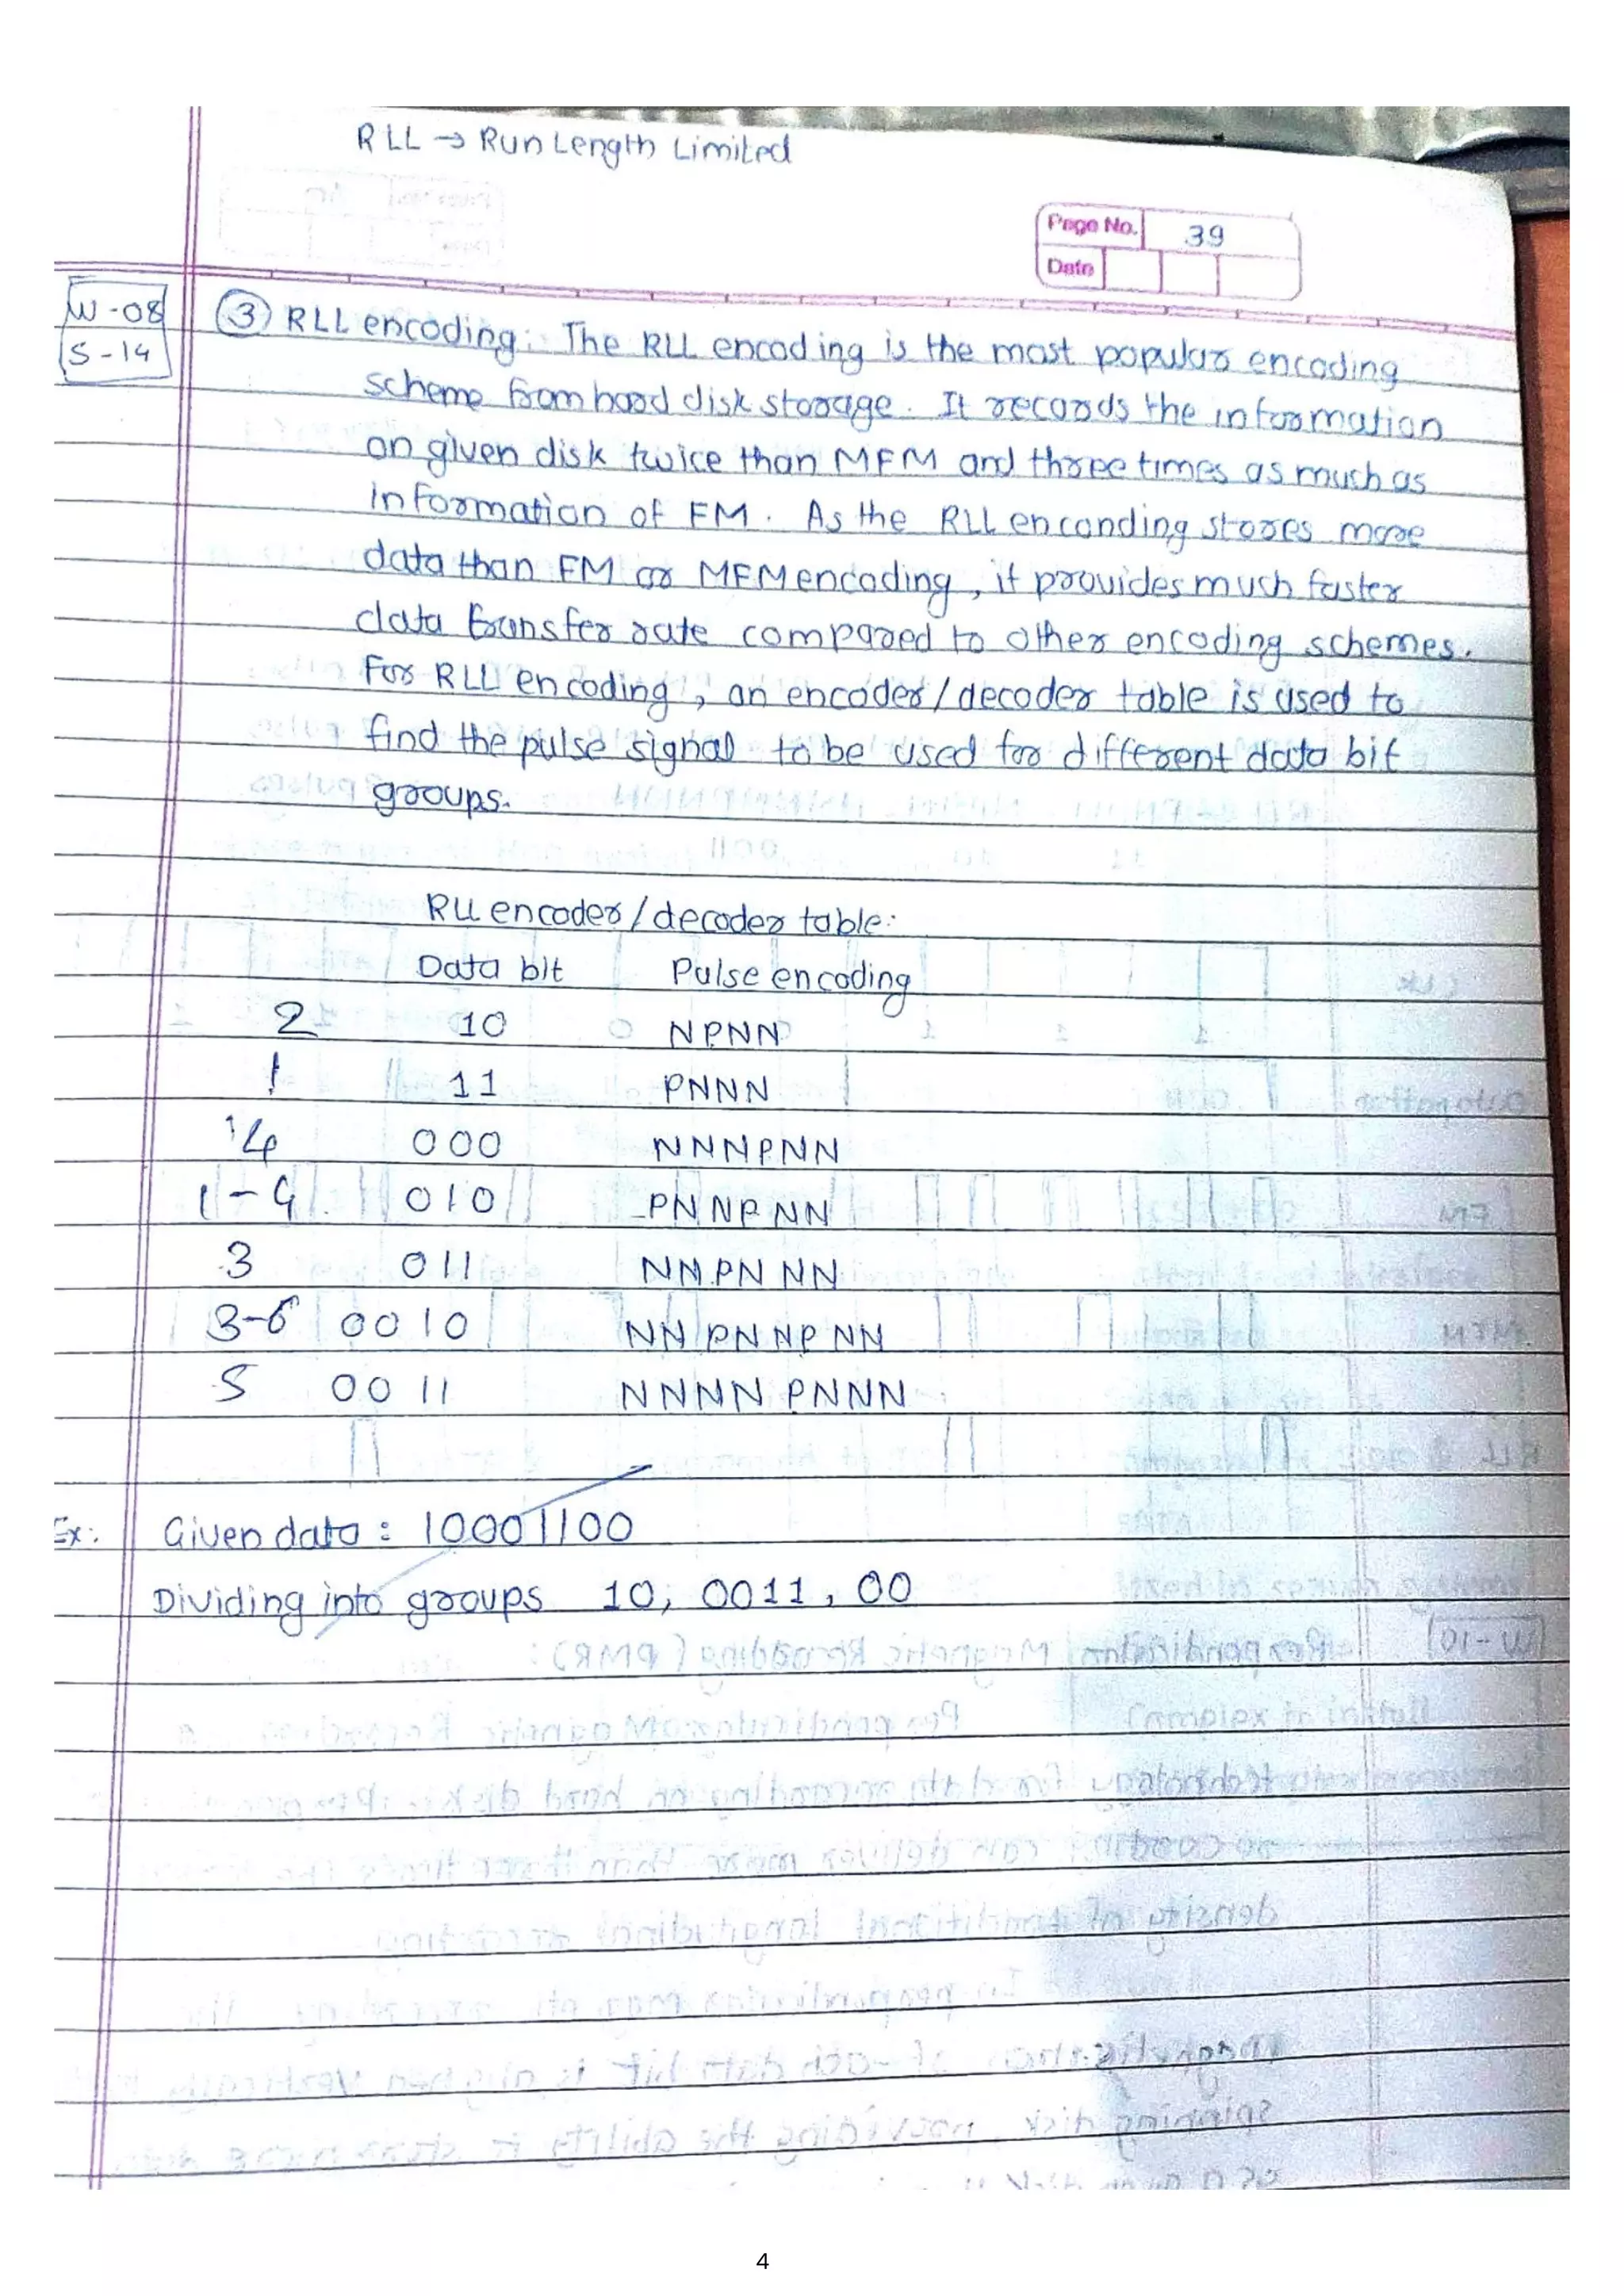 RLL → Run Length Limited
Page No. 39
Date
W-08
S-14
③ RLL encoding: The RLL encoding is the most popular encoding
scheme from hard disk storage. It records the information
on given disk twice than MFM and three times as much as
information of FM. As the RLL enconding stores more
data than FM or MFM encoding, it provides much faster
data transfer rate compared to other encoding schemes.
For RLL encoding, an encoder/decoder table is used to
find the pulse signal to be used for different data bit
groups.
RLL encoder/decoder table:
Data bit Pulse encoding
2 10 NPNN
1 11 PNNN
4 000 NNNPNN
1-4 010 PNNPNN
3 011 NNPNNN
3-6 0010 NNPNNPNN
5 0011 NNNNPNNN
Ex: Given data: 10001100
Dividing into groups 10, 0011, 00
4